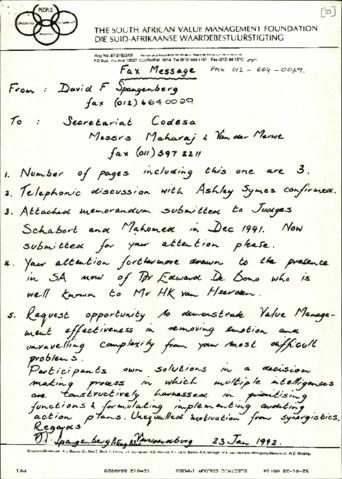 PEOPLE
[23]
THE SOUTH AFRICAN VALUE MANAGEMENT FOUNDATION
DIE SUID-AFRIKAANSE WAARDEBESTUURSTIGTING
Fax Message
FAX 012 - 664 - 0029.
From : David F Spangenberg
fax (012) 664 0029
To : Secretariat Codesa
Messrs Maharaj & Van der Merwe
fax (011) 397 2211
1. Number of pages including this one are 3.
2. Telephonic discussion with Ashley Symes confirmed.
3. Attached memorandum submitted to Judges
Schabort and Mahomed in Dec 1991. Now
submitted for your attention please.
4. Your attention furthermore drawn to the presence
in SA now of Dr Edward De Bono who is
well known to Mr HK van Heerden.
5. Request opportunity to demonstrate Value Manage-
ment effectiveness in removing emotion and
unravelling complexity from your most difficult
problems.
Participants own solutions in a decision
making process in which multiple intelligences
are constructively harnessed in prioritising
functions & formulating implementing auditing
action plans. Unequalled motivation from synergistics.
Regards
Spangenberg 23 Jan 1992.